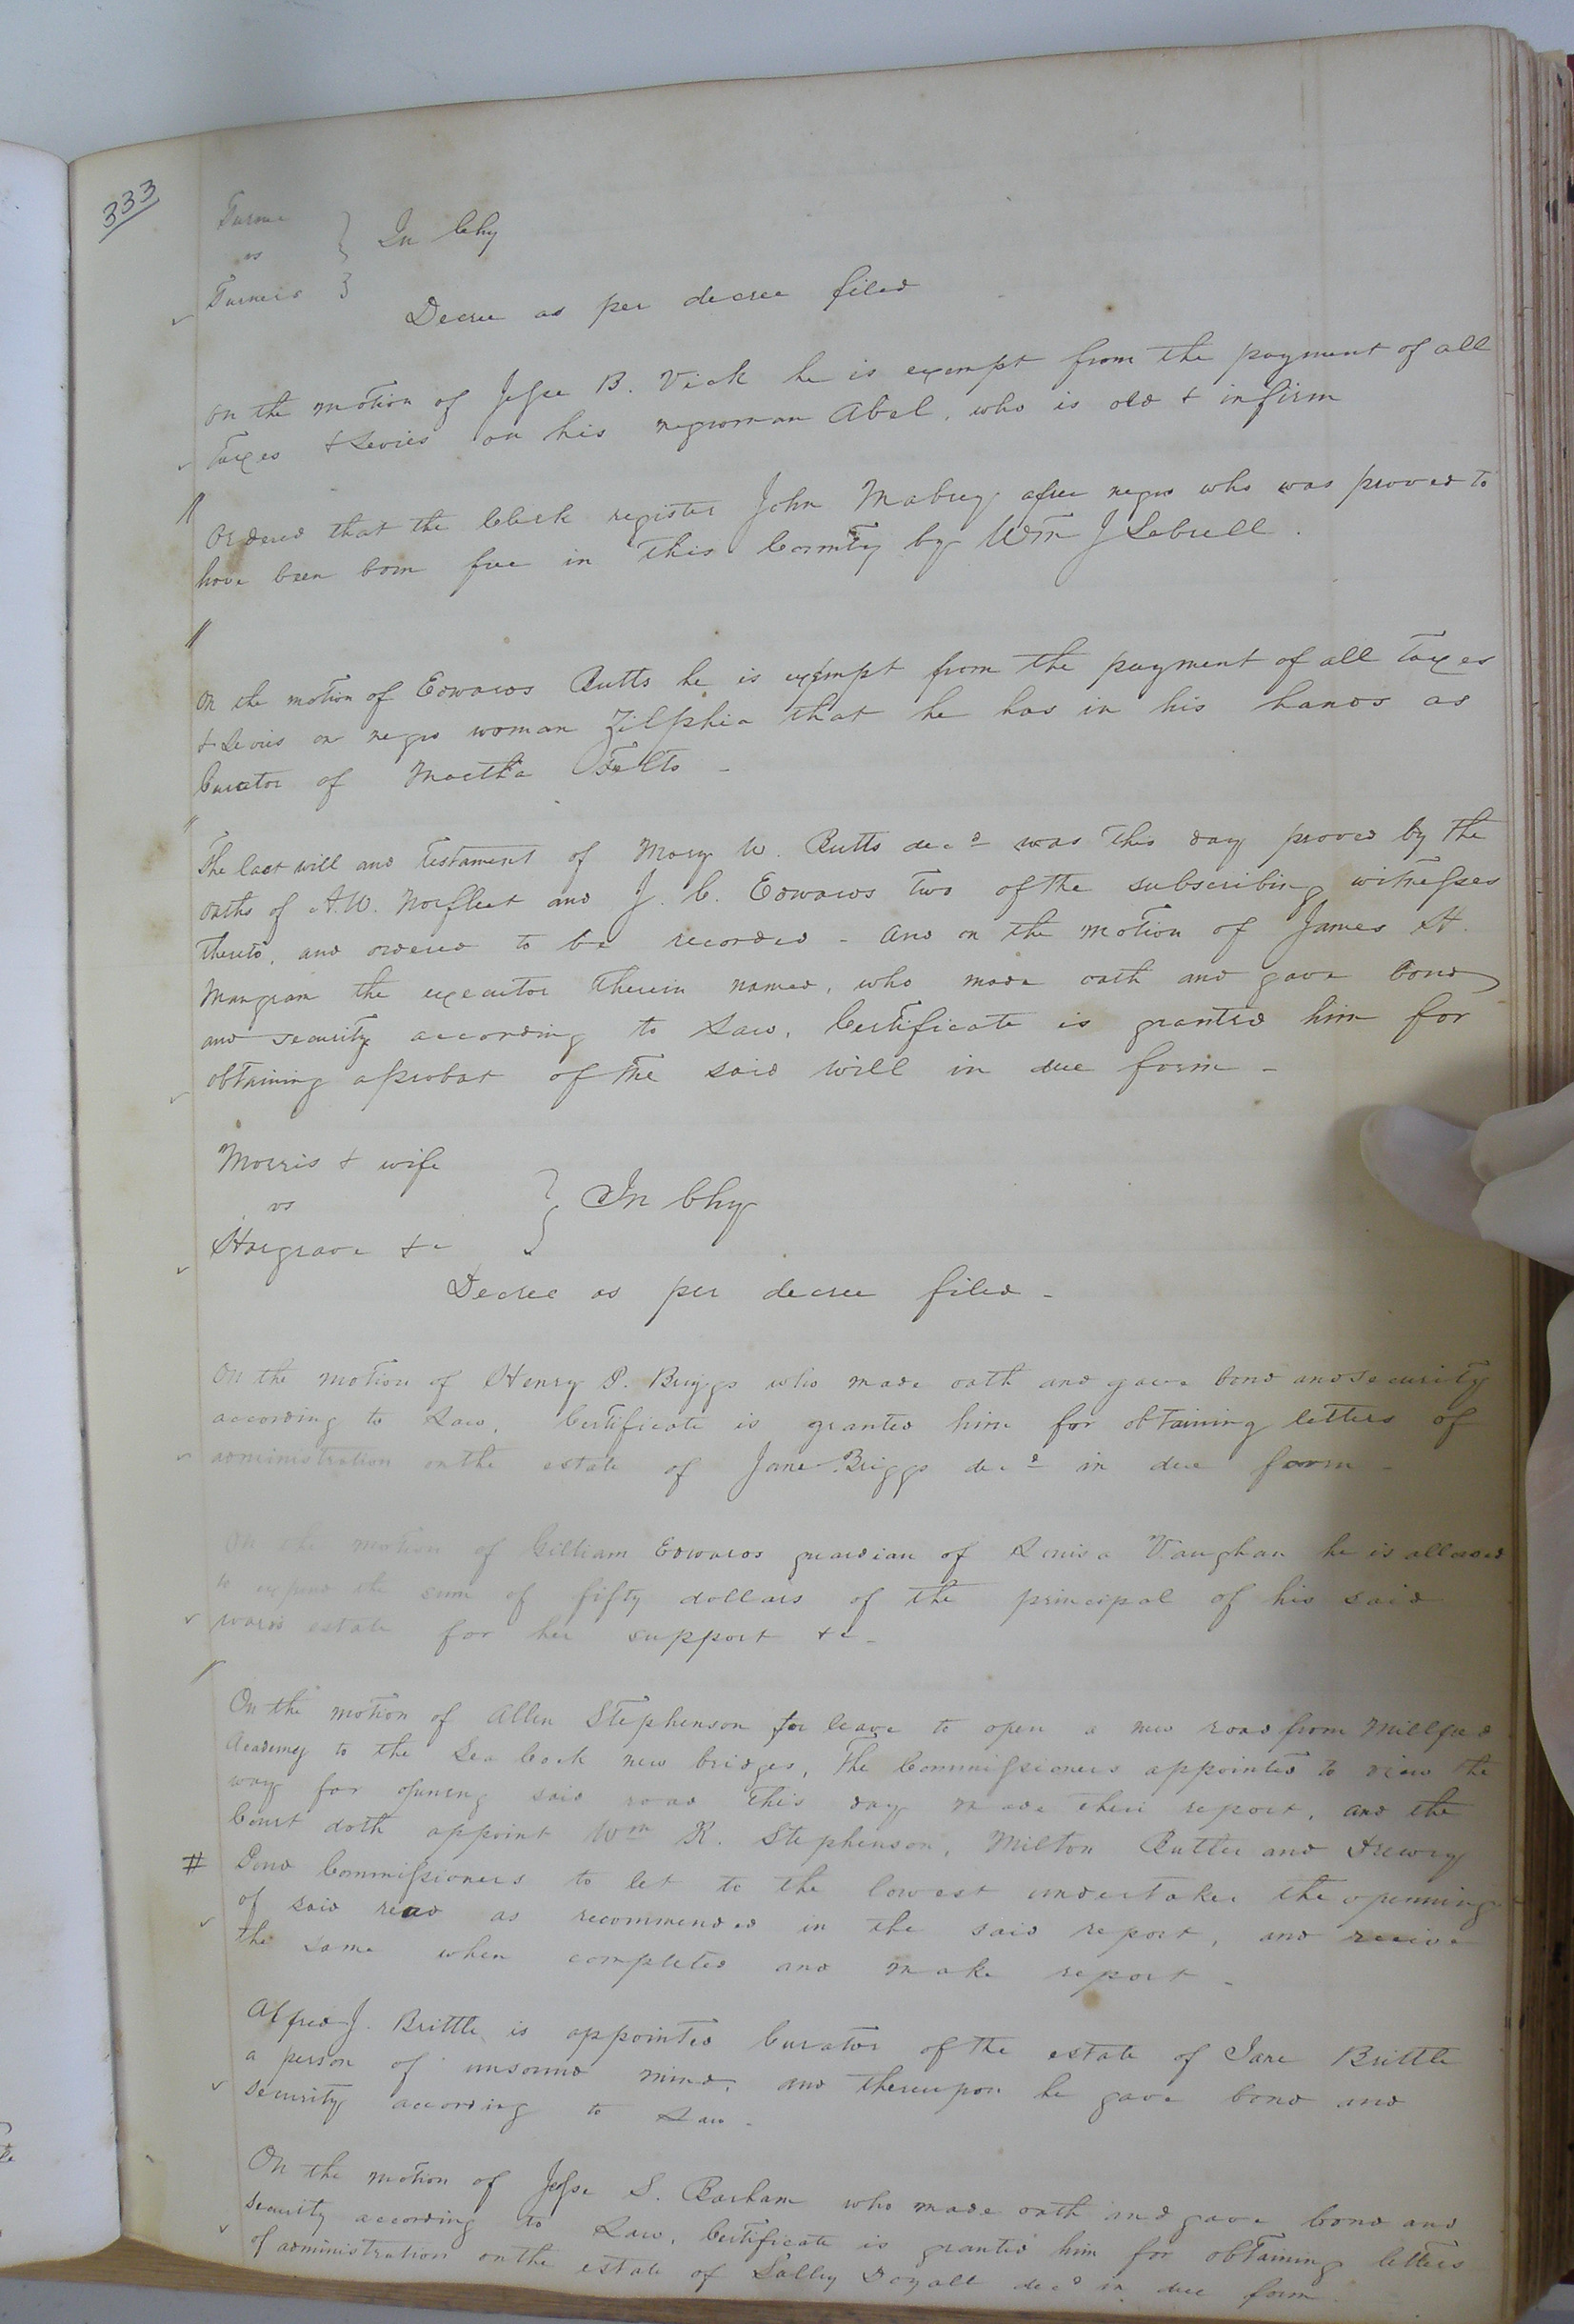 333
Turner
vs } In Chy
Turners
Decree as per decree filed
On the motion of Jesse B. Vick he is exempt from the payment of all
Taxes & Levies on his negroman Abel, who is old & infirm
Ordered that the Clerk register John Mabry a free negro who was proved to
have been born free in this County by Wm J Sebrell.
On the motion of Edwards Butts he is exempt from the payment of all Taxes
& Levies on negro woman Zilphia that he has in his hands as
Curator of Martha Felts -
The last will and testament of Mary W. Butts decd was this day proved by the
oaths of A. W. Norfleet and J. C. Edwards two of the subscribing witnesses
thereto, and ordered to be recorded - and on the motion of James H.
Mangram the executor therein named, who made oath and gave bond
and security according to Law, Certificate is granted him for
obtaining a probat of the said will in due form -
Morris & wife
vs } In Chy
Hargrave &c
Decree as per decree filed -
On the motion of Henry P. Briggs who made oath and gave bond and security
according to Law, Certificate is granted him for obtaining letters of
administration on the estate of Jane Briggs decd in due form -
On the motion of Gilliam Edwards guardian of Louisa Vaughan he is allowed
to expend the sum of fifty dollars of the principal of his said
wards estate for her support &c -
On the motion of Allen Stephenson for leave to open a new road from Millfred
Academy to the Sea Cock new bridges, The Commissioners appointed to view the
way for opening said road this day made their report, and the
Court doth appoint Wm R. Stephenson, Milton Butler and Drewry
# Commissioners to let to the lowest undertaker the openning
of said road as recommended in the said report, and receive
the same when completed and make report -
Alfred J. Brittle is appointed Curator of the estate of Jane Brittle
a person of unsound mind, and thereupon he gave bond and
security according to Law -
On the motion of Jesse S. Barham who made oath and gave bond and
security according to Law, Certificate is granted him for obtaining letters
of administration on the estate of Salley Doyall decd in due form.